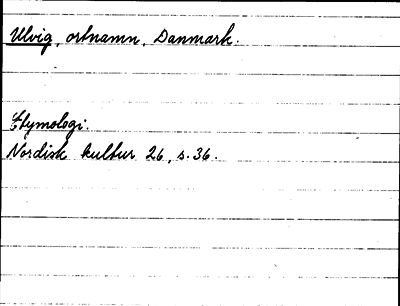 Ulvig, ortnamn, Danmark.
Etymologi.
Nordisk kultur 26, s. 36.